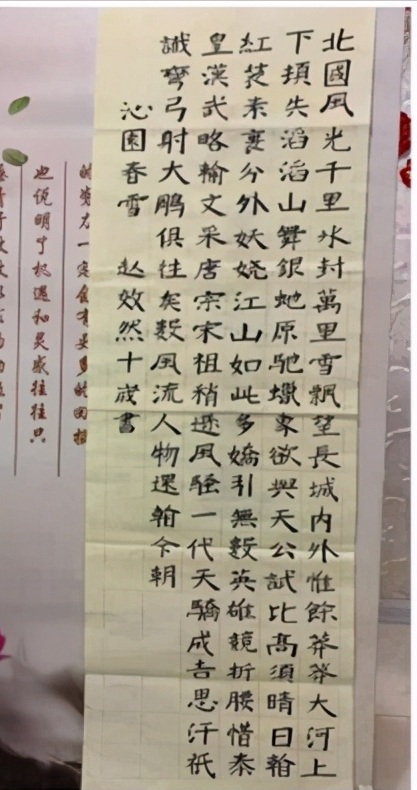 北國风光千里氷封萬里雪飄望長城内外惟餘莽莽大河上
下頓失滔滔山舞銀蛇原馳蠟象欲與天公試比高須晴日翰
紅裝素裹分外妖娆江山如此多嬌引無數英雄競折腰惜秦
皇漢武略輸文采唐宗宋祖稍遜风騷一代天驕成吉思汗祇
識彎弓射大鵰俱往矣數风流人物還翰今朝
沁園春雪 赵效然十歲書
的努力一定会有更多的回报
也说明了机遇和灵感往往只